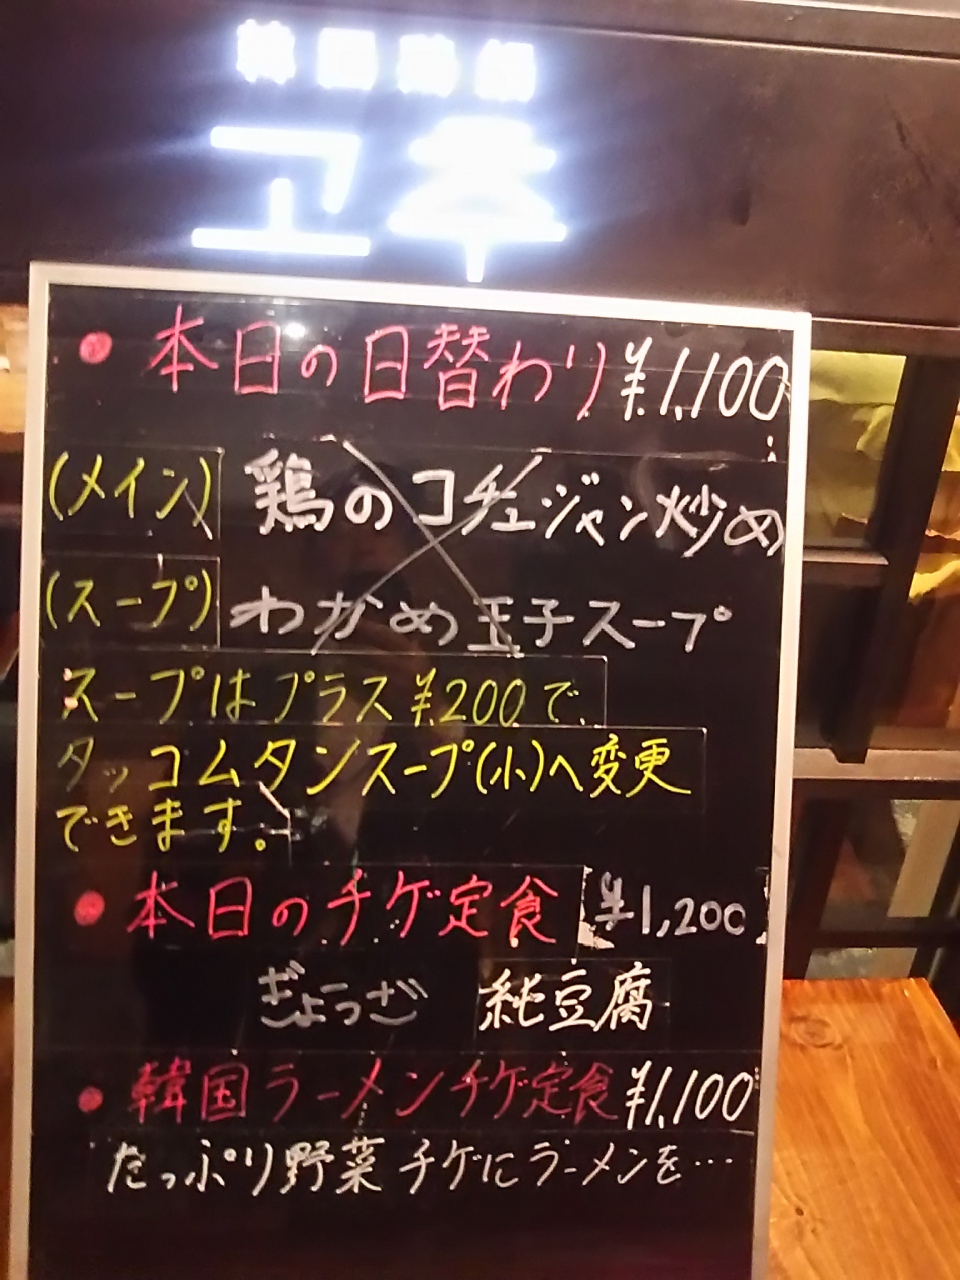 韓国鶏鍋
고추
本日の日替わり ¥1,100
(メイン) 鶏のコチュジャン炒め
(スープ) わかめ玉子スープ
スープはプラス¥200で、
タッコムタンスープ(小)へ変更
できます。
本日のチゲ定食 ¥1,200
ぎょうざ 純豆腐
韓国ラーメンチゲ定食 ¥1,100
たっぷり野菜チゲにラーメンを…